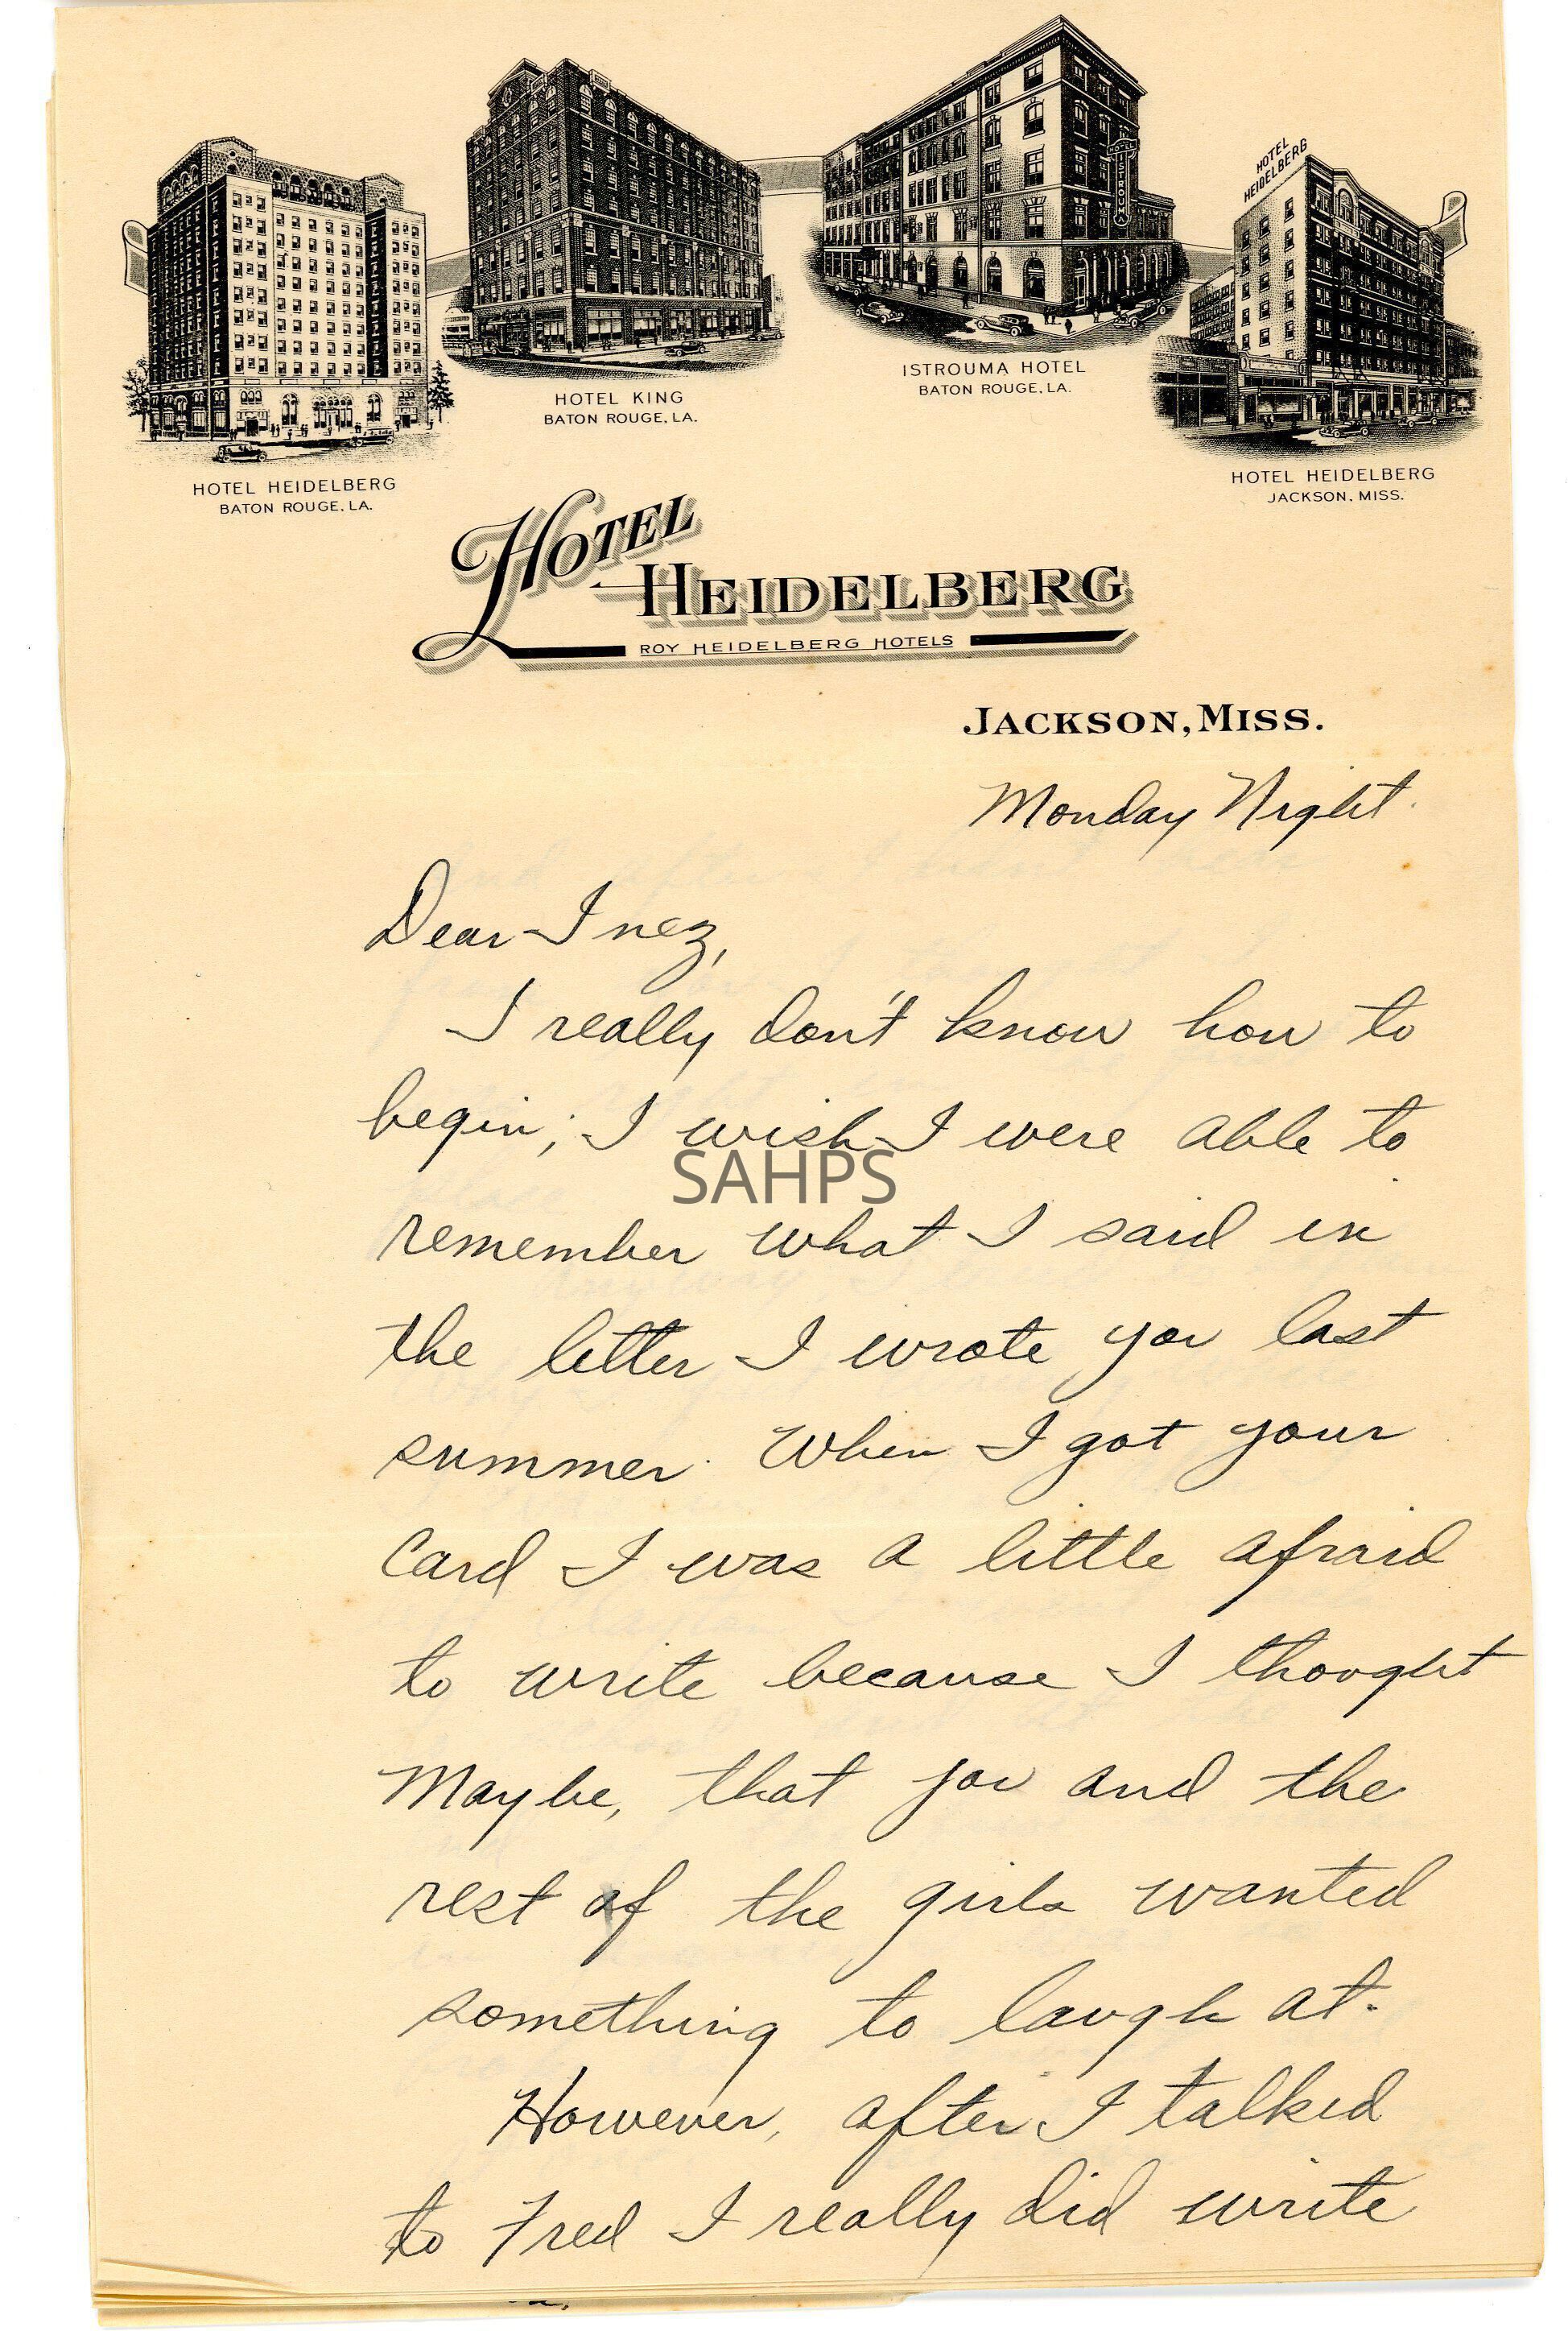 HOTEL HEIDELBERG
HOTEL HEIDELBERG
BATON ROUGE, LA.
HOTEL KING
BATON ROUGE, LA.
HOTEL ISTROUMA
ISTROUMA HOTEL
BATON ROUGE, LA.
HOTEL HEIDELBERG
JACKSON, MISS.
HOTEL
HEIDELBERG
ROY HEIDELBERG HOTELS
JACKSON, MISS.
Monday Night.
Dear Inez,
I really don't know how to
begin; I wish I were able to
SAHPS
remember what I said in
the letter I wrote you last
summer. When I got your
Card I was a little afraid
to write because I thought
Maybe, that you and the
rest of the girls wanted
something to laugh at.
However, after I talked
to Fred I really did write